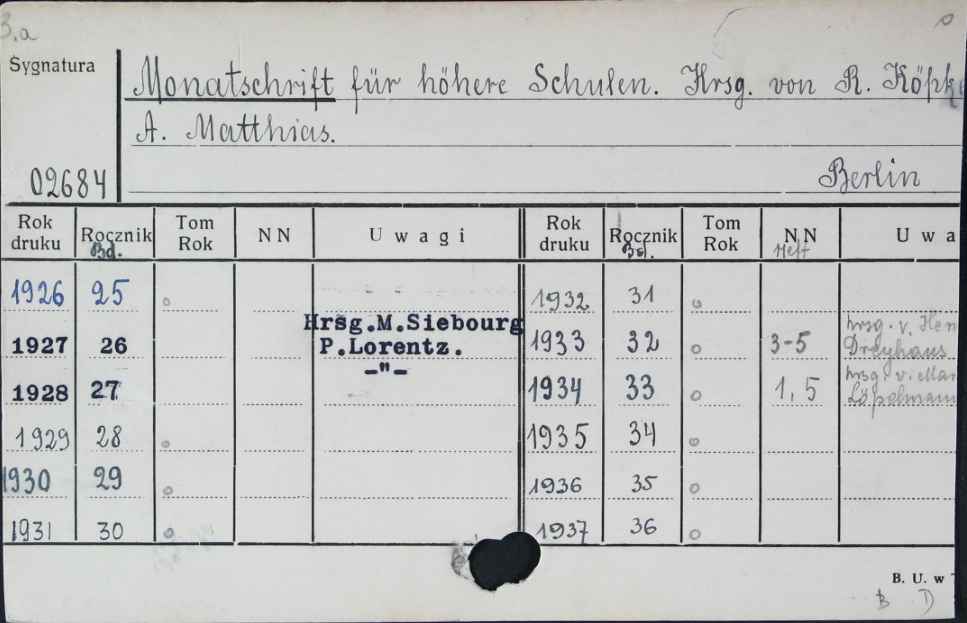 3.a
Sygnatura
Monatschrift für höhere Schulen. Hrsg. von R. Köpke
A. Matthias.
02684
Berlin
Rok druku Rocznik Bd. Tom Rok NN Uwagi Rok druku Rocznik Bd. Tom Rok NN Heft Uwa
1926 25 1932 31
1927 26 Hrsg.M.Siebourg P.Lorentz. 1933 32 3-5 hrsg. v. Hen Dreyhaus
1928 27 -"- 1934 33 1, 5 hrsg. v. Mar Löpelmann
1929 28 1935 34
1930 29 1936 35
1931 30 1937 36
B. U. w
B D